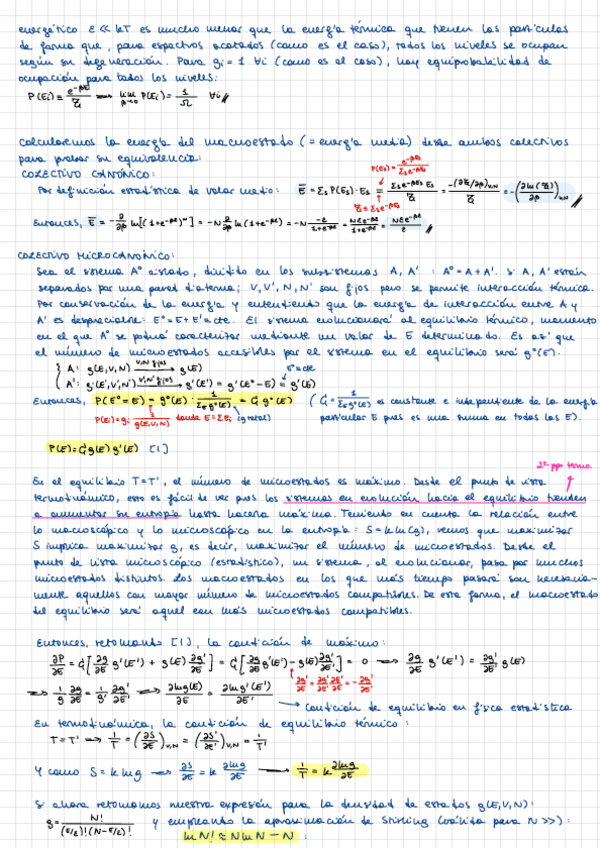 energético ε ≪ kT es mucho menor que la energía térmica que tienen las partículas
de forma que, para espectros acotados (como es el caso), todos los niveles se ocupan
según su degeneración. Para gᵢ = 1 ∀i (como es el caso), hay equiprobabilidad de
ocupación para todos los niveles:
P(Eᵢ) = e^{-βEᵢ}/Z → lim_{β→0} P(Eᵢ) = 1/Ω ∀i //
Calcularemos la energía del macroestado (= energía media) desde ambos colectivos
para probar su equivalencia:
P(Es) = e^{-βEs}/Σs e^{-βEs}
COLECTIVO CANÓNICO:
Por definición estadística de valor medio: Ē = Σs P(Es)·Es = Σs e^{-βEs} Es / Z = -(∂Z/∂β)_{V,N} / Z = -(∂ln(Z)/∂β)_{V,N} //
Z = Σs e^{-βEs}
Entonces, Ē = -∂/∂β ln[(1+e^{-βε})^N] = -N ∂/∂β ln(1+e^{-βε}) = -N (-ε)/(1+e^{-βε}) = Nεe^{-βε}/(1+e^{-βε}) = Nεe^{-βε}/z //
COLECTIVO MICROCANÓNICO:
Sea el sistema A° aislado, dividido en los subsistemas A, A' : A° = A + A'. Si A, A' están
separados por una pared diaterma; V, V', N, N' son fijos pero se permite interacción térmica.
Por conservación de la energía y entendiendo que la energía de interacción entre A y
A' es despreciable: E° = E + E' = cte. El sistema evolucionará al equilibrio térmico, momento
en el que A° se podrá caracterizar mediante un valor de E determinado. Es así que
el número de microestados accesibles por el sistema en el equilibrio será g°(E).
{ A: g(E,V,N) →(V,N fijos) g(E) E° = cte
A': g'(E',V',N') →(V',N' fijos) g'(E') = g'(E°-E) = g'(E)
Entonces, P(E° = E) = g°(E) · 1/Σ_E g°(E) = C g°(E) (C = 1/Σ_E g°(E) es constante e independiente de la energía
P(E) = gᵢ 1/g(E,V,N) donde E = ΣEᵢ (g total) particular E pues es una suma en todas las E).
P(E) = C g(E) g'(E) [1]
2º ppo termo.
En el equilibrio T = T', el número de microestados es máximo. Desde el punto de vista
termodinámico, esto es fácil de ver pues los sistemas en evolución hacia el equilibrio tienden
a aumentar su entropía hasta hacerla máxima. Teniendo en cuenta la relación entre
lo macroscópico y lo microscópico en la entropía: S = k ln(g), vemos que maximizar
S implica maximizar g, es decir, maximizar el número de microestados. Desde el
punto de vista microscópico (estadístico), un sistema, al evolucionar, pasa por muchos
microestados distintos. Los macroestados en los que más tiempo pasará son necesaria-
mente aquellos con mayor número de microestados compatibles. De esta forma, el macroestado
del equilibrio será aquel con más microestados compatibles.
Entonces, retomando [1], la condición de máximo:
∂P/∂E = C[∂g/∂E g'(E') + g(E) ∂g'/∂E] = C[∂g/∂E g'(E') - g(E) ∂g'/∂E'] = 0 → ∂g/∂E g'(E') = ∂g'/∂E' g(E)
∂g'/∂E = ∂g'/∂E' ∂E'/∂E = -∂g'/∂E'
→ 1/g ∂g/∂E = 1/g' ∂g'/∂E' → ∂ln g(E)/∂E = ∂ln g'(E')/∂E'
→ Condición de equilibrio en física estadística
En termodinámica, la condición de equilibrio térmico:
T = T' → 1/T = (∂S/∂E)_{V,N} = (∂S'/∂E')_{V,N} = 1/T'
Y como S = k ln g → ∂S/∂E = k ∂ln g/∂E → 1/T = k ∂ln g/∂E
Si ahora retomamos nuestra expresión para la densidad de estados g(E,V,N):
g = N!/((E/ε)!(N-E/ε)!) y empleando la aproximación de Stirling (válida para N >>):
ln N! ≈ N ln N - N :